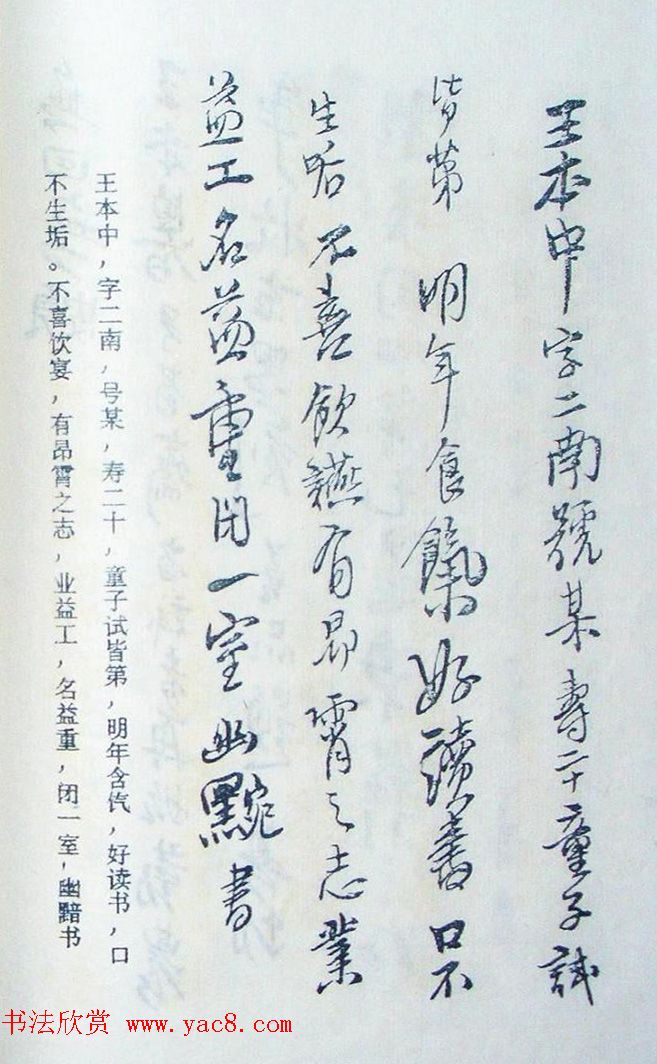 王本中字二南號某壽二十童子試
皆第 明年食餼好讀書口不
生垢不喜飲讌有昂霄之志業
益工名益重閉一室幽黯書
王本中，字二南，号某，寿二十，童子试皆第，明年含饩，好读书，口
不生垢。不喜饮宴，有昂霄之志，业益工，名益重，闭一室，幽黯书
书法欣赏 www.yac8.com